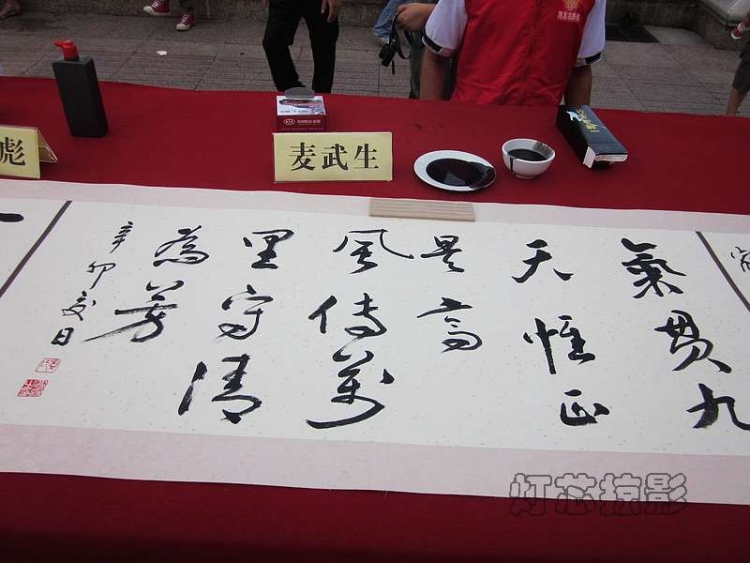 彪
麦武生
氣贯九
天惟正
是高
風傳萬
里守清
為芳
辛卯夏日
灯芯掠影